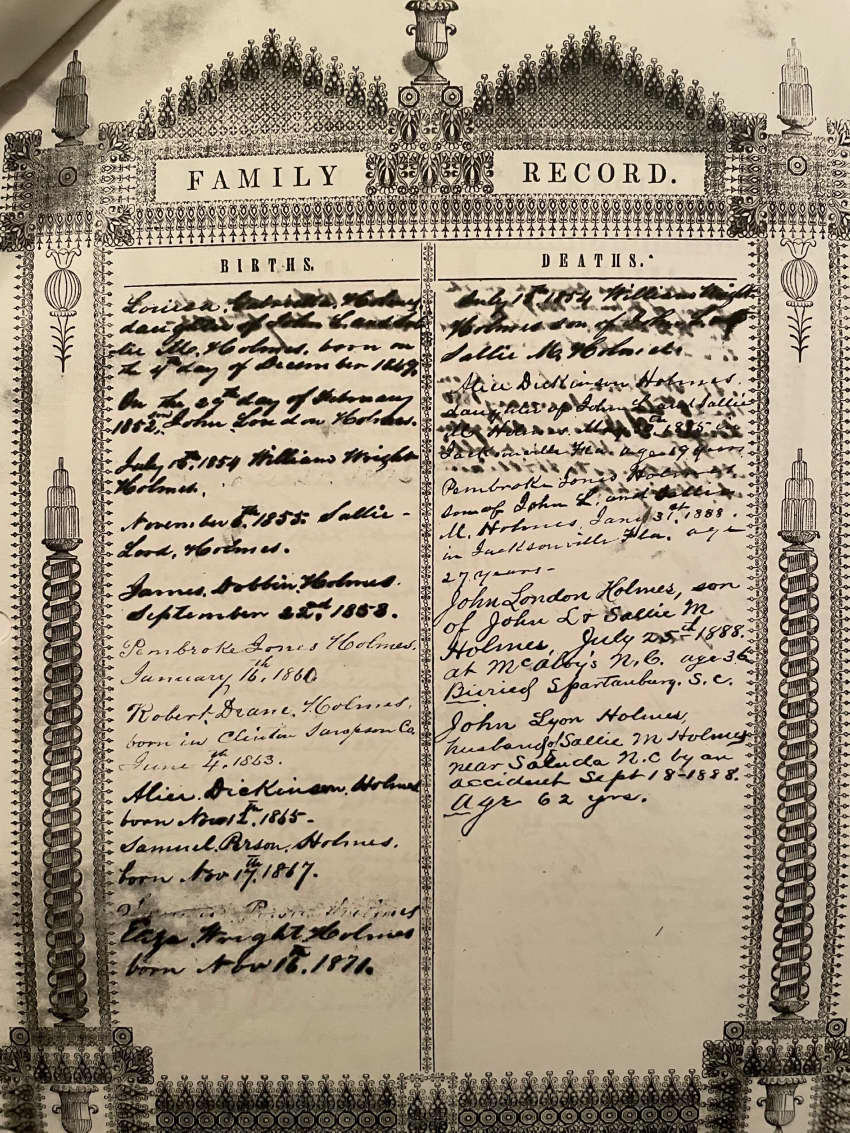 FAMILY RECORD.
BIRTHS.
Louisa Holmes
daughter of John L. and Sal-
lie M. Holmes. born on
the 4th day of December 1849.
On the 29th day of February
1852, John London Holmes.
July 15th. 1854 William Wright
Holmes.
November 6th. 1855. Sallie-
Lord, Holmes.
James, Dobbin, Holmes.
September 22nd. 1858.
Pembroke Jones Holmes.
January 16th. 1860
Robert Drane, Holmes,
born in Clinton Sampson Co,
June 4th. 1863.
Alice. Dickinson. Holmes
born Nov 12th. 1865-
Samuel. Person. Holmes.
born Nov 17th. 1867.
Wright Holmes
born Nov 16th. 1871.
DEATHS.
July 15th 1854 William Wright
Holmes son of John L. &
Sallie M. Holmes.
Alice Dickinson Holmes.
daughter of John L. and Sallie
M. Holmes. May 1885
Jacksonville Fla. age 19 years
Pembroke Jones Holmes
son of John L. and Sallie
M. Holmes, Jany 31st. 1888.
in Jacksonville Fla. age
27 years-
John London Holmes, son
of John L & Sallie M
Holmes, July 25th 1888.
at N.C. age 36
Buried Spartanburg. S.C.
John Lyon Holmes,
husband of Sallie M Holmes
near Saluda N.C by an
accident Sept 18-1888.
Age 62 yrs.